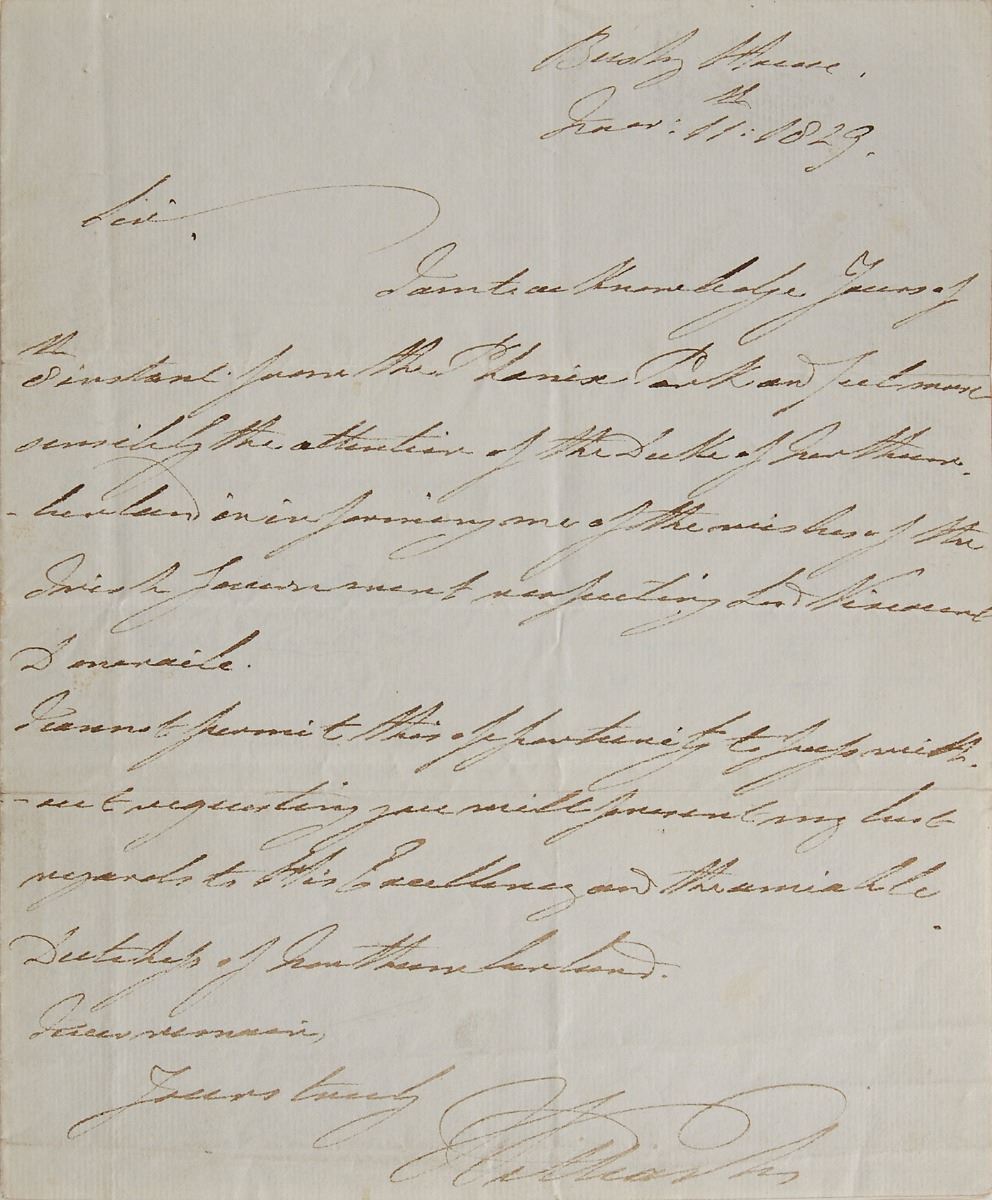 Bushy House.
Janr: 11th: 1829.
Sir,
I am to acknowledge Yours of
8th instant from the Phoenix Park and feel most
sensibly the attention of the Duke of Northum-
-berland in informing me of the wishes of the
Irish Government respecting Lord Viscount
Doneraile.
I cannot permit this opportunity to pass with-
-out requesting you will present my best
regards to His Excellency and the amiable
Dutchess of Northumberland.
I ever remain,
Yours truly
William